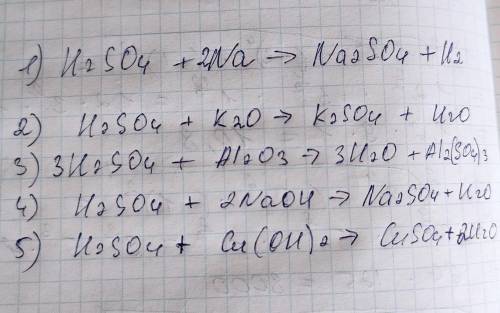 1) H2SO4 + 2Na → Na2SO4 + H2
2) H2SO4 + K2O → K2SO4 + H2O
3) 3H2SO4 + Al2O3 → 3H2O + Al2(SO4)3
4) H2SO4 + 2NaOH → Na2SO4 + H2O
5) H2SO4 + Cu(OH)2 → CuSO4 + 2H2O